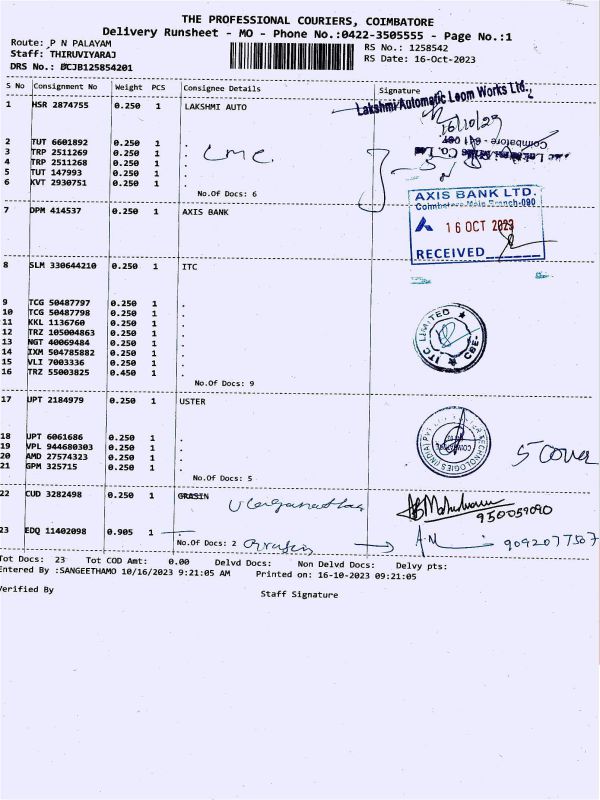 THE PROFESSIONAL COURIERS, COIMBATORE
Delivery Runsheet - MO - Phone No.:0422-3505555 - Page No.:1
Route: P N PALAYAM
Staff: THIRUVIYARAJ
DRS No.: BCJB125854201
RS No.: 1258542
RS Date: 16-Oct-2023
S No Consignment No Weight PCS Consignee Details Signature
1 HSR 2874755 0.250 1 LAKSHMI AUTO
Lakshmi Automatic Loom Works Ltd.,
16/10/23
Coimbatore - 641 001
2 TUT 6601892 0.250 1 .
3 TRP 2511269 0.250 1 .
4 TRP 2511268 0.250 1 .
5 TUT 147993 0.250 1 .
6 KVT 2930751 0.250 1 .
CMC
5
No.Of Docs: 6
7 DPM 414537 0.250 1 AXIS BANK
AXIS BANK LTD.
Coimbatore Main Branch-090
16 OCT 2023
RECEIVED
8 SLM 330644210 0.250 1 ITC
9 TCG 50487797 0.250 1 .
10 TCG 50487798 0.250 1 .
11 KKL 1136760 0.250 1 .
12 TRZ 105004863 0.250 1 .
13 NGT 40069484 0.250 1 .
14 IXM 504785882 0.250 1 .
15 VLI 7003336 0.250 1 .
16 TRZ 55003825 0.450 1 .
ITC LIMITED
CBE-
No.Of Docs: 9
17 UPT 2184979 0.250 1 USTER
18 UPT 6061686 0.250 1 .
19 VPL 944680303 0.250 1 .
20 AMD 27574323 0.250 1 .
21 GPM 325715 0.250 1 .
TECHNOLOGIES (INDIA) PVT
5 Cover
No.Of Docs: 5
22 CUD 3282498 0.250 1 GRASIN
950059090
23 EDQ 11402098 0.905 1 .
No.Of Docs: 2 Grasim
9092077507
Tot Docs: 23 Tot COD Amt: 0.00 Delvd Docs: Non Delvd Docs: Delvy pts:
Entered By :SANGEETHAMO 10/16/2023 9:21:05 AM Printed on: 16-10-2023 09:21:05
Verified By
Staff Signature